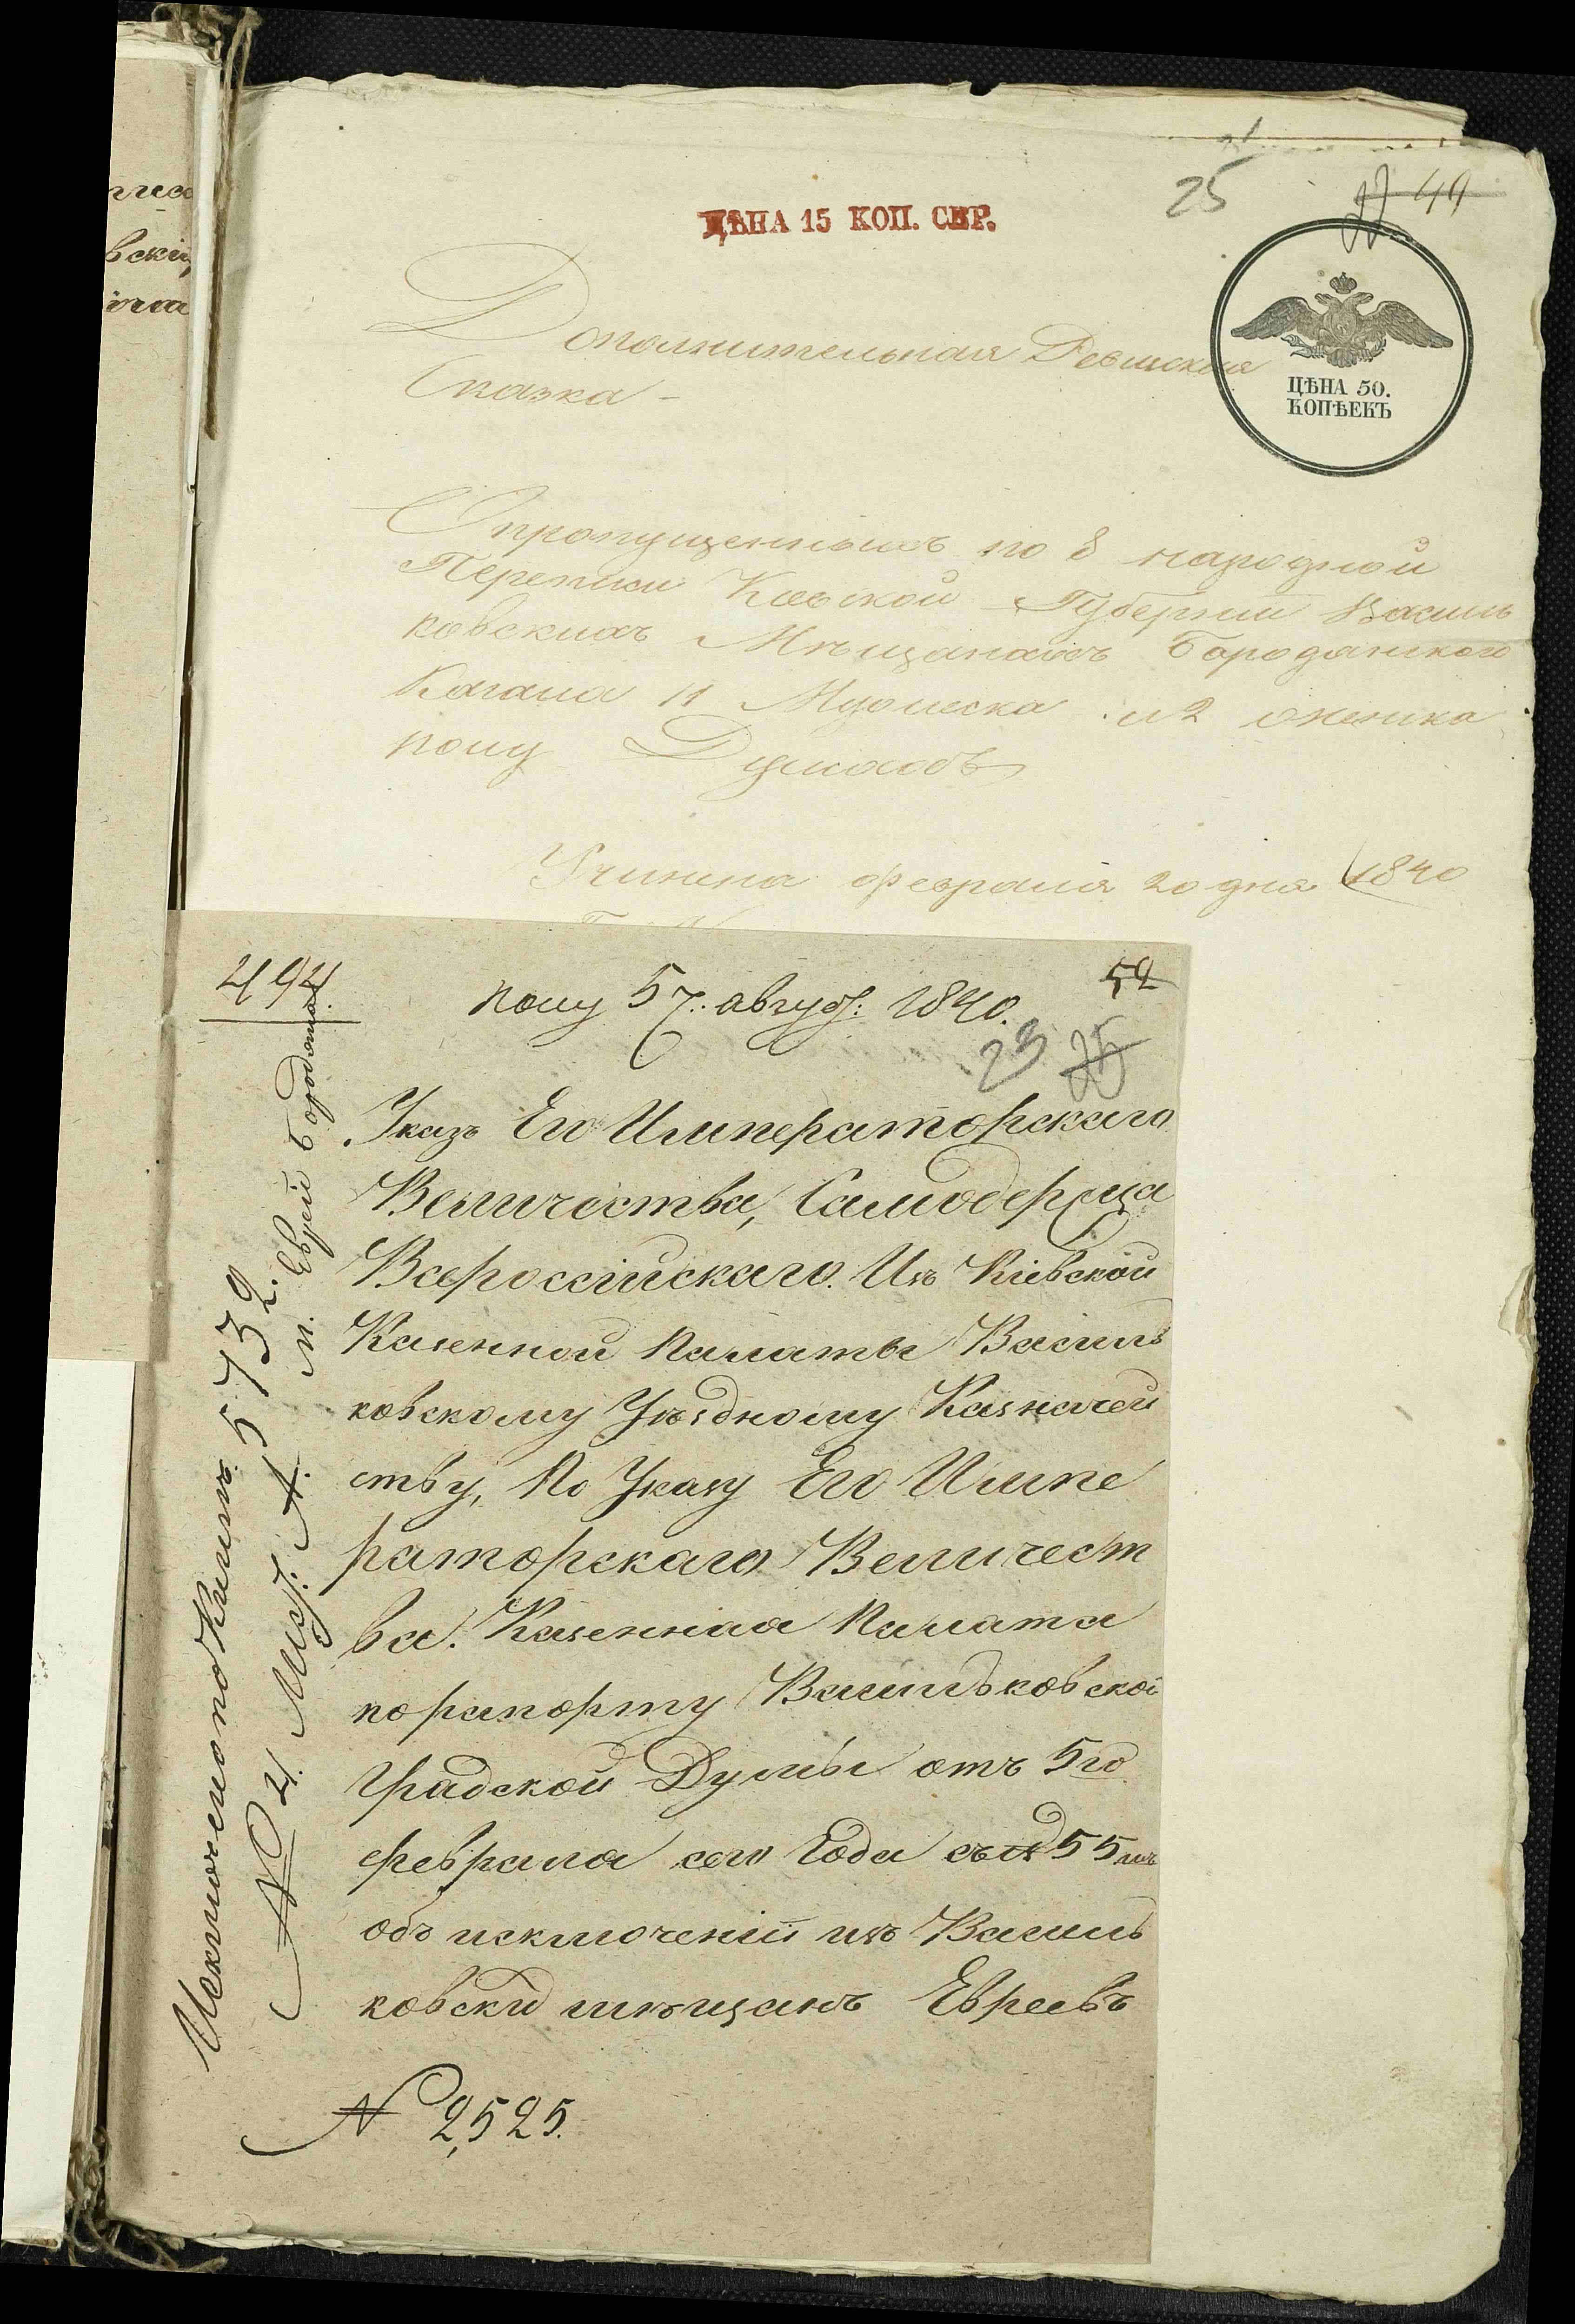 25
49
ЦѢНА 15 КОП. СЕР.
ЦѢНА 50.
КОПѢЕКЪ
Дополнительная Ревиская
Сказка –
О пропущенныхъ по 8 народной
Переписи Кіевской Губерніи Василь
ковскихъ Мѣщанахъ Бородянского
Кагала 11 Мужеска и 2 женска
полу Душахъ
Учинена февраля 20 дня 1840
494
52
Полу 57. авгус: 1840.
23 25
Указъ Его Императорскаго
Величества, Самодержца
Всероссійскаго. Изъ Кіевской
Казенной Палаты Василь
ковскому Уѣздному Казначей
ству, По Указу Его Импе
раторскаго Величест
ва. Казенная Палата
по рапорту Васильковской
Градской Думы отъ 5го
февраля сего Года съ № 55мъ
объ исключеніи изъ Василь
ковски мѣщанъ Евреевъ
№ 2,525.
Исключено по Книгѣ 5732.
№ 4. А. м. Еврей Бородян:
вскій